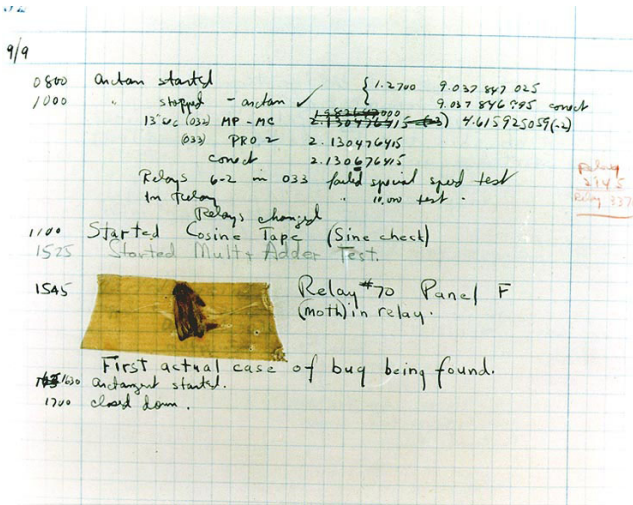 9/9
0800 Antan started
1000 " stopped - antan ✓ { 1.2700 9.037 847 025
9.037 846 995 correct
13"uc (032) MP - MC 2.130476415 (-3) 4.615925059(-2)
(033) PRO 2 2.130476415
correct 2.130676415
Relays 6-2 in 033 failed special speed test
In Relay " 10.000 test.
Relay
2145
Relay 337
Relays changed
1100 Started Cosine Tape (Sine check)
1525 Started Mult+Adder Test.
1545 Relay #70 Panel F
(moth) in relay.
First actual case of bug being found.
1630 Antangent started.
1700 closed down.